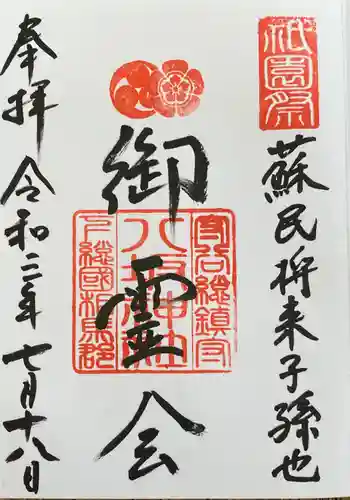 祇園祭
蘇民将来子孫也
御霊会
守谷総鎮守
八坂神社
下総國相馬郡
奉拝
令和二年七月十八日